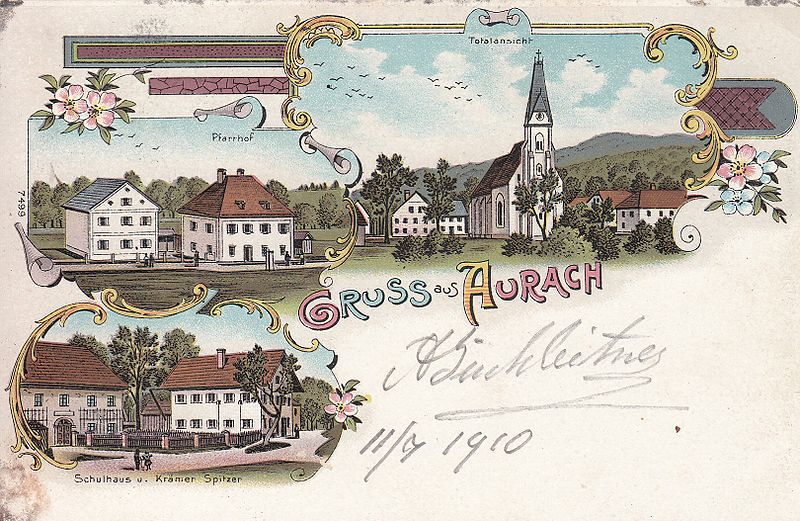 Totalansicht
Pfarrhof
7499
GRUSS aus AURACH
A Buchleitner
11/7 1910
Schulhaus u. Krämer Spitzer